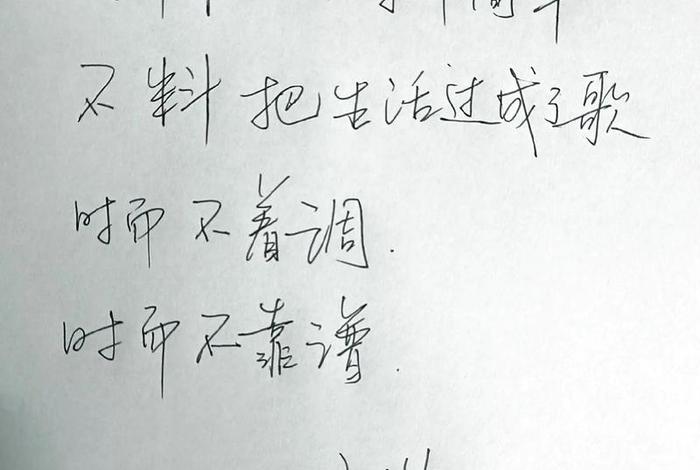 不料把生活过成了歌
时而不着调.
时而不靠谱.